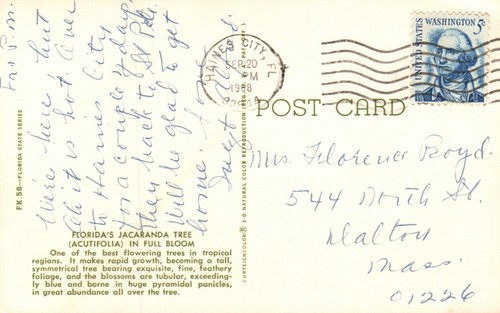 Fri P.M.
We're here, but
oh it is hot. Over
to Haines City
for a couple of days,
then back to St Pete
Will be glad to get
home.
FK.58—FLORIDA STATE SERIES
FLORIDA'S JACARANDA TREE
(ACUTIFOLIA) IN FULL BLOOM
One of the best flowering trees in tropical
regions. It makes rapid growth, becoming a tall,
symmetrical tree bearing exquisite, fine, feathery
foliage, and the blossoms are tubular, exceeding-
ly blue and borne in huge pyramidal panicles,
in great abundance all over the tree.
CURTEICHCOLOR® 3-D NATURAL COLOR REPRODUCTION
POST CARD
HAINES CITY, FL
SEP 20
PM
1968
UNITED STATES
WASHINGTON 5c
Mrs. Florence Boyd.
544 North St.
Dalton
Mass.
01226